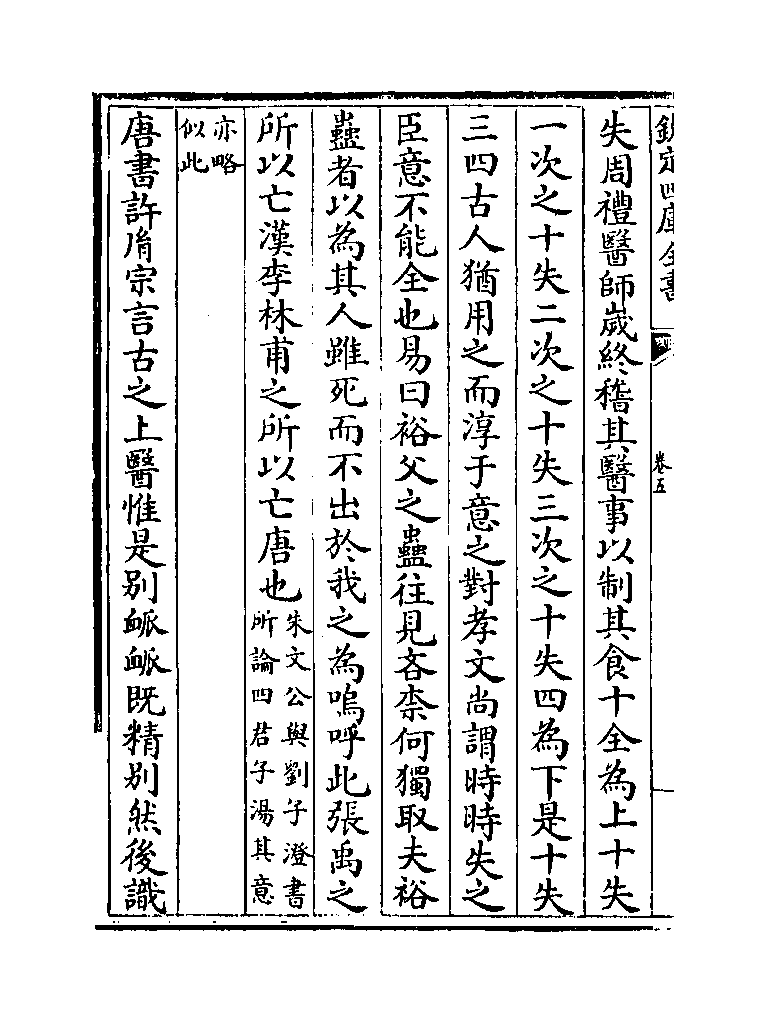 欽定四庫全書
卷五
失周禮醫師歲終稽其醫事以制其食十全為上十失
一次之十失二次之十失三次之十失四為下是十失
三四古人猶用之而淳于意之對孝文尚謂時時失之
臣意不能全也易曰裕父之蠱往見吝柰何獨取夫裕
蠱者以為其人雖死而不出於我之為嗚呼此張禹之
所以亡漢李林甫之所以亡唐也朱文公與劉子澄書
所論四君子湯其意
亦略
似此
唐書許𦙍宗言古之上醫惟是别脈脈既精别然後識